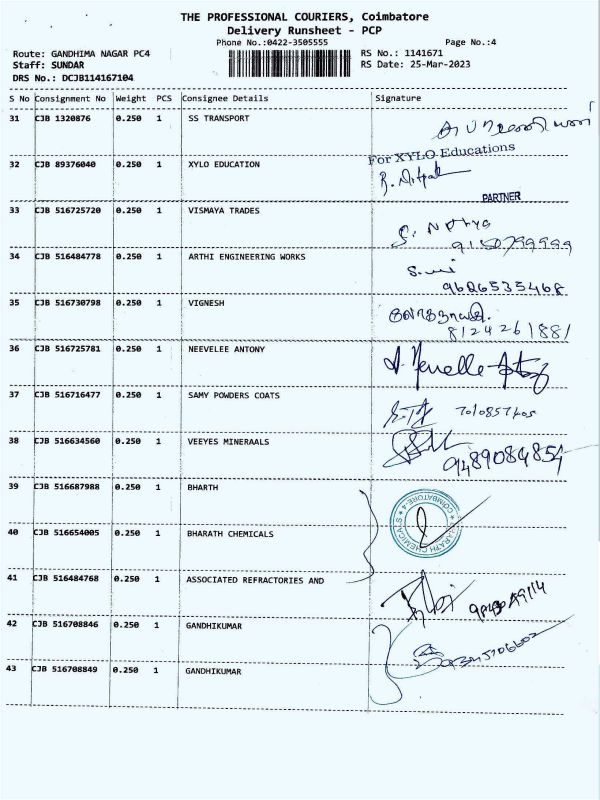 THE PROFESSIONAL COURIERS, Coimbatore
Delivery Runsheet - PCP
Phone No.:0422-3505555 Page No.:4
Route: GANDHIMA NAGAR PC4 RS No.: 1141671
Staff: SUNDAR RS Date: 25-Mar-2023
DRS No.: DCJB114167104
S No Consignment No Weight PCS Consignee Details Signature
31 CJB 1320876 0.250 1 SS TRANSPORT
32 CJB 89376040 0.250 1 XYLO EDUCATION
For XYLO Educations
PARTNER
33 CJB 516725720 0.250 1 VISMAYA TRADES
34 CJB 516484778 0.250 1 ARTHI ENGINEERING WORKS
9626535468
35 CJB 516730798 0.250 1 VIGNESH
8124261881
36 CJB 516725781 0.250 1 NEEVELEE ANTONY
37 CJB 516716477 0.250 1 SAMY POWDERS COATS
38 CJB 516634560 0.250 1 VEEYES MINERAALS
9489084854
39 CJB 516687988 0.250 1 BHARTH
BHARATH CHEMICALS ★ COIMBATORE-4 ★
40 CJB 516654005 0.250 1 BHARATH CHEMICALS
41 CJB 516484768 0.250 1 ASSOCIATED REFRACTORIES AND
42 CJB 516708846 0.250 1 GANDHIKUMAR
43 CJB 516708849 0.250 1 GANDHIKUMAR